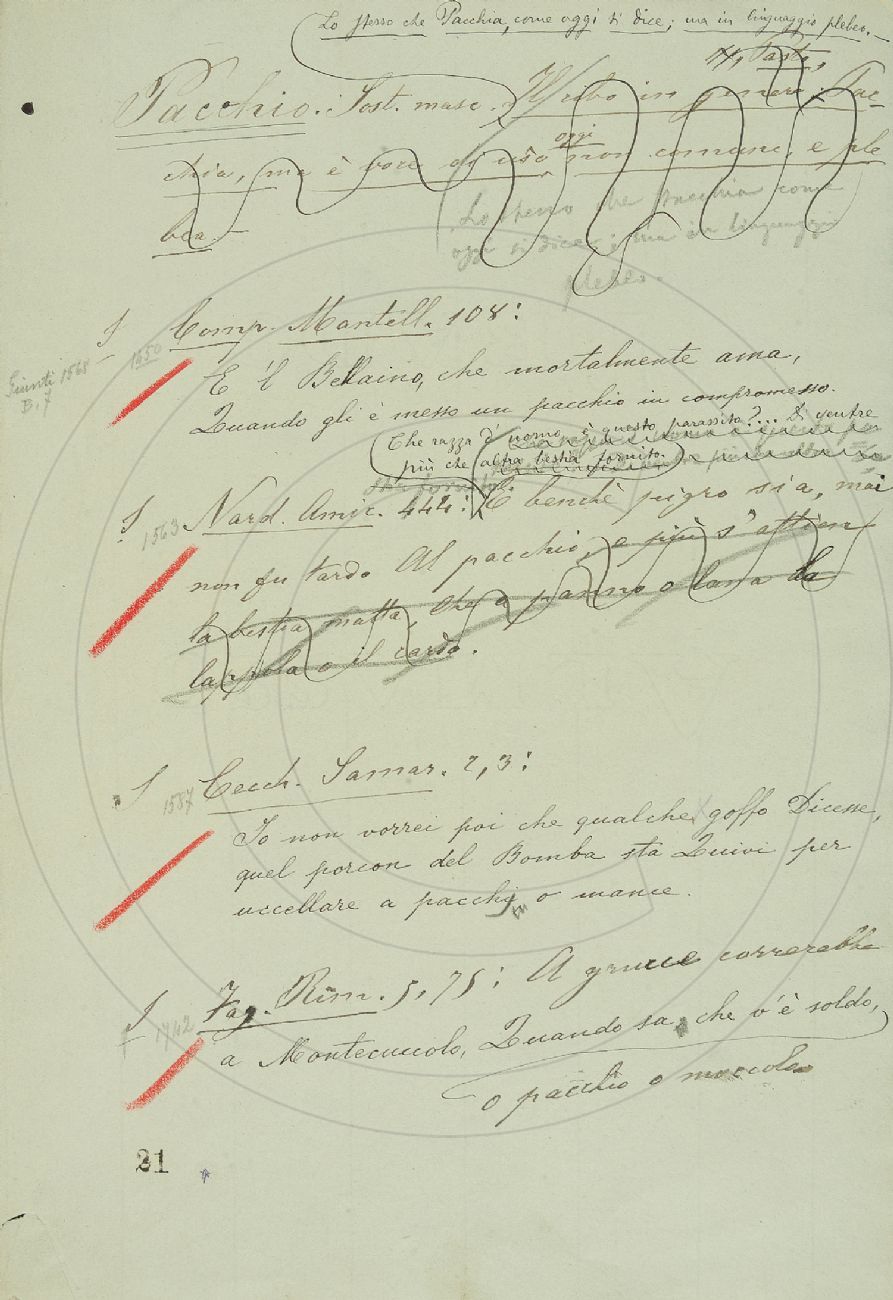 Lo stesso che Pacchia, come oggi si dice; ma in linguaggio plebeo.
Pasto,
Pacchio. Sost. masc. Il cibo in genere. Pac-
oggi
chia, ma è voce di uso non comune, e ple
bea.
Lo stesso che pacchia come
oggi si dice; ma in linguaggio
plebeo.
S Comp. Mantell. 108:
1550
Giunti 1568
B. 7
E 'l Bellaino, che mortalmente ama,
Quando gli è messo un pacchio in compromesso.
Che razza d' uomo è questo parassita?... Di ventre
più che altra bestia fornito.
S 1563 Nard. Amic. 444: E benchè pigro sia, mai
non fu tardo Al pacchio, e più s'attien
la bestia matta, Che a panno o lana la
lappola o il cardo.
S 1587 Cecch. Samar. 2, 3:
Io non vorrei poi che qualche goffo Dicesse,
quel porcon del Bomba sta Quivi per
uccellare a pacchi o mance.
S 1742 Fag. Rim. 5, 75: A grucce correrebbe
a Montecuccolo, Quando sa, che v'è soldo,
o pacchio o moccolo
21